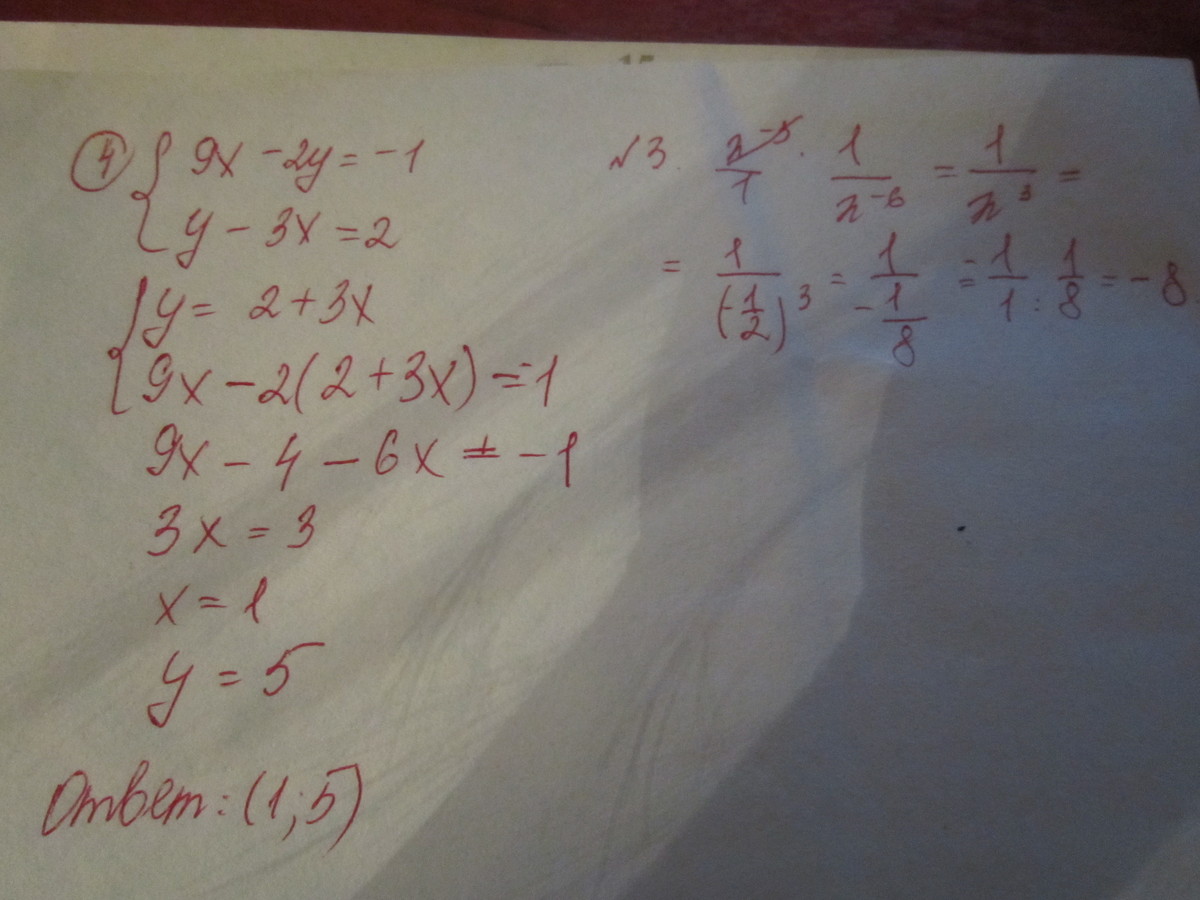 ④ { 9x - 2y = -1
y - 3x = 2
{ y = 2 + 3x
9x - 2(2 + 3x) = -1
9x - 4 - 6x = -1
3x = 3
x = 1
y = 5
Ответ: (1; 5)
№3. x⁻⁵/1 · 1/x⁻⁶ = 1/x³ =
= 1/(-1/2)³ = 1/(-1/8) = -1/1 : 1/8 = -8